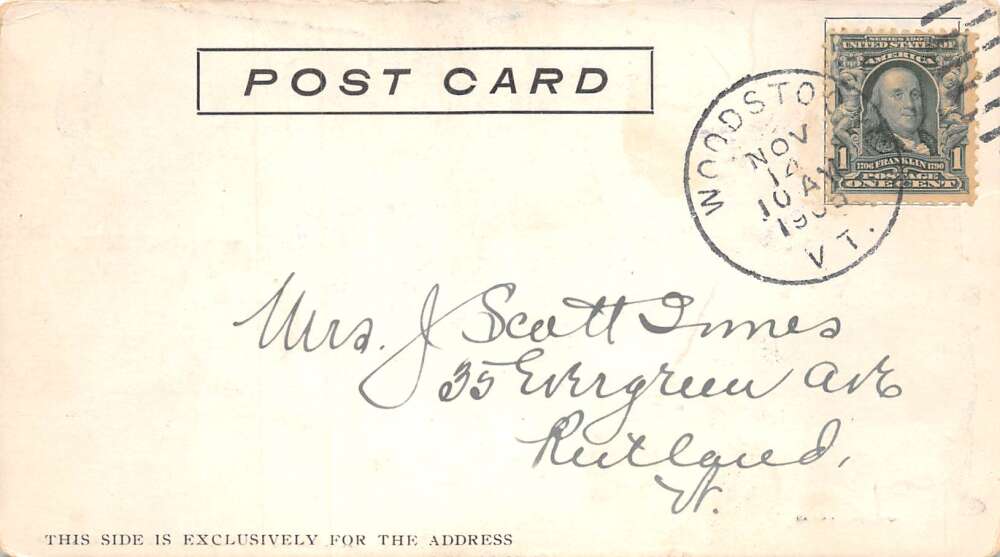 POST CARD
SERIES 1902
UNITED STATES OF
AMERICA
1706 FRANKLIN 1790
1 1
POSTAGE
ONE CENT
WOODSTOCK
NOV
14
10 AM
VT.
Mrs. J Scott Innes
35 Evergreen Ave
Rutland,
Vt.
THIS SIDE IS EXCLUSIVELY FOR THE ADDRESS